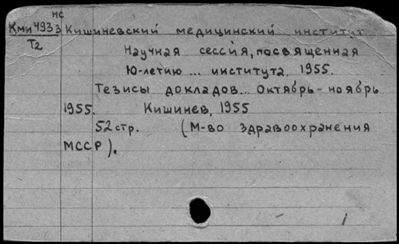 нс
Кми 4933 Кишиневский медицинский институт
T2
Научная сессия, посвященная
10-летию ... института, 1955.
Тезисы докладов... Октябрь-ноябрь
1955. Кишинев, 1955
52 стр. (М-во здравоохранения
МССР).